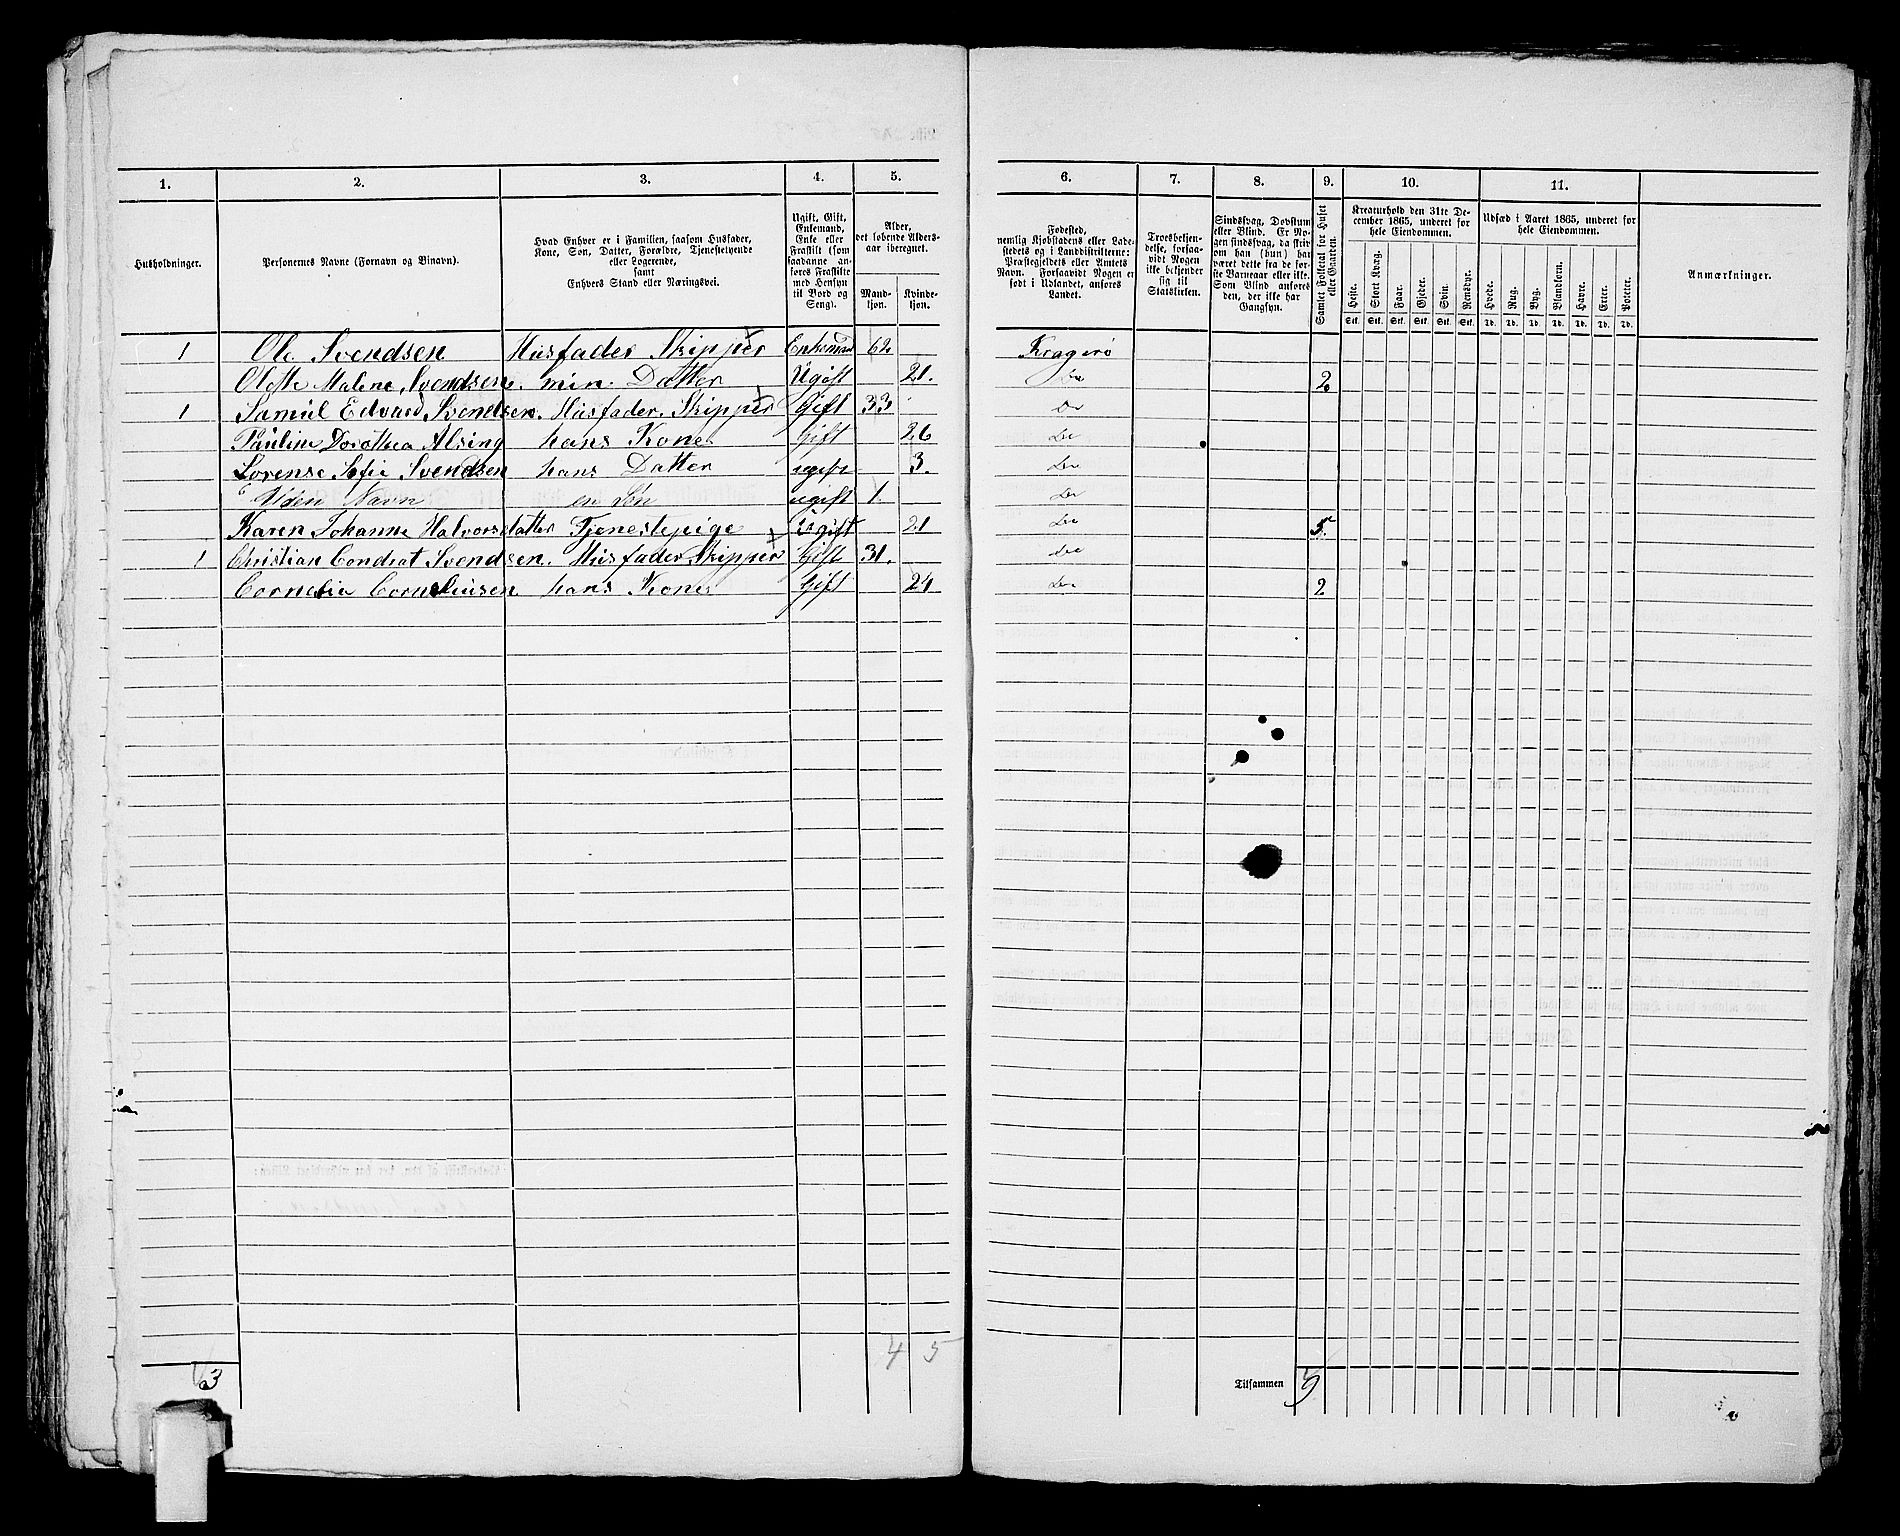 1. 2. 3. 4. 5. 6. 7. 8. 9. 10. 11.
Husholdninger.
Personernes Navne (Fornavn og Binavn).
Hvad Enhver er i Familien, saasom Husfader,
Kone, Søn, Datter, Forældre, Tjenestetyende
eller Logerende,
samt
Enhvers Stand eller Næringsvei.
Ugift, Gift,
Enkemand,
Enke eller
Fraskilt (som
saadanne an-
føres Fraskilte
med Hensyn
til Bord og
Seng).
Alder,
det løbende Alders-
aar iberegnet.
Mand-
kjøn.
Kvinde-
kjøn.
Fødested,
nemlig Kjøbstadens eller Lade-
stedets og i Landdistrikterne:
Præstegjeldets eller Amtets
Navn. Forsaavidt Nogen er
født i Udlandet, anføres
Landet.
Troesbekjen-
delse, forsaa-
vidt Nogen
ikke bekjender
sig til
Statskirken.
Sindssvag, Døvstum
eller Blind. Er No-
gen sindssvag, da skriv
om han (hun) har
været dette fra de før-
ste Barneaar eller ikke.
Som Blind anføres
den, der ikke har
Gangsyn.
Samlet Folketal for Huset
eller Gaarden.
Kreaturhold den 31te De-
cember 1865, underet for
hele Eiendommen.
Heste. Stort Kvæg. Faar. Gjeder. Svin. Rensdyr.
Stk. Stk. Stk. Stk. Stk. Stk.
Udsæd i Aaret 1865, underet for
hele Eiendommen.
Hvede. Rug. Byg. Blandkorn. Havre. Erter. Poteter.
Td. Td. Td. Td. Td. Td. Td.
Anmærkninger.
1 Ole Svendsen Husfader Skipper Enkemand 62 Kragerø
Olette Malene Svendsen. min Datter Ugift 21. Do 2
1 Samuel Edvard Svendsen. Husfader. Skipper Gift 33 Do
Pauline Dorothea Alsing hans Kone Gift 26 Do
Lorense Sofie Svendsen hans Datter ugift 3. Do
Uden Navn en Søn ugift 1. Do
Karen Johanne Halvorsdatter Tjenestepige Ugift 21 Do 5.
1 Christian Condrat Svendsen. Husfader Skipper Gift 31. Do
Cornelia Corneliusen hans Kone Gift 24 Do 2
3 4 5 Tilsammen 9